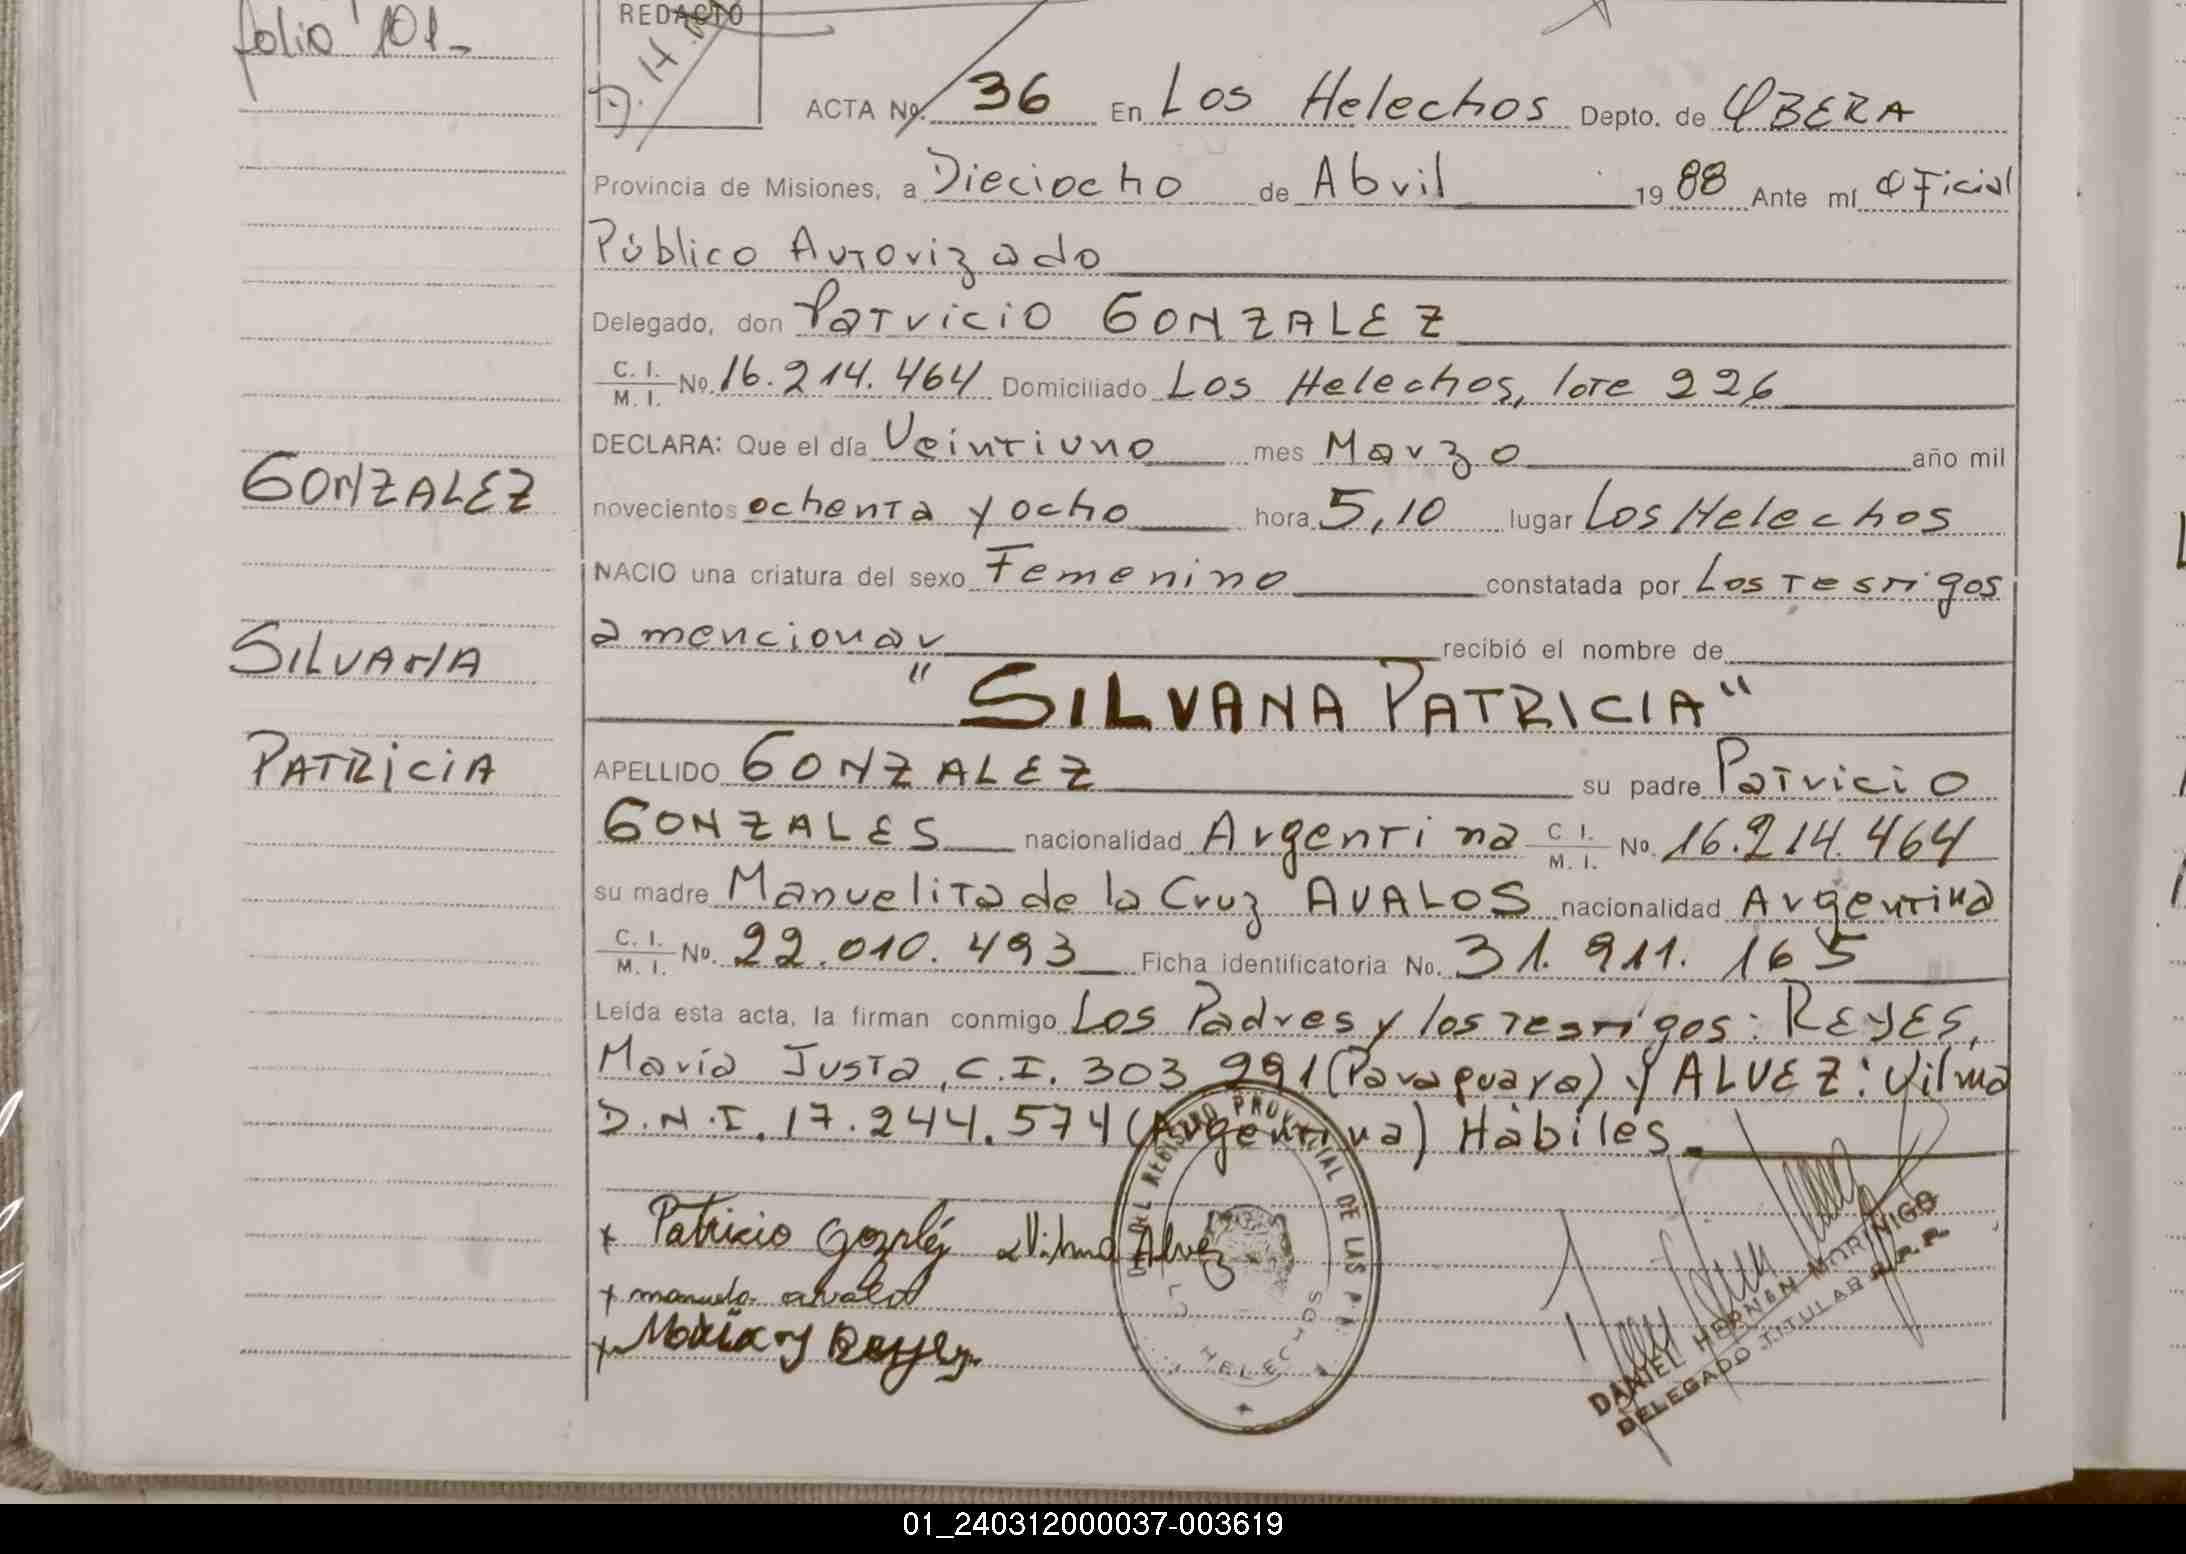 folio 101-
REDACTO
D. H. M
ACTA No. 36 En Los Helechos Depto. de OBERA
Provincia de Misiones, a Dieciocho de Abril 1988 Ante mí Oficial
Público Autorizado
Delegado, don Patricio GONZALEZ
C. I. / M. I. No. 16.214.464 Domiciliado Los Helechos, lote 226
DECLARA: Que el día Veintiuno mes Marzo año mil
novecientos ochenta y ocho hora 5,10 lugar Los Helechos
GONZALEZ
NACIO una criatura del sexo Femenino constatada por Los testigos
a mencionar recibió el nombre de
SILVANA
"SILVANA PATRICIA"
APELLIDO GONZALEZ su padre Patricio
PATRICIA
GONZALES nacionalidad Argentina C. I. / M. I. No. 16.214.464
su madre Manuelita de la Cruz AVALOS nacionalidad Argentina
C. I. / M. I. No. 22.010.493 Ficha identificatoria No. 31.911.165
Leída esta acta, la firman conmigo Los Padres y los testigos: REYES,
María Justa, C.I. 303 291 (Paraguaya) y ALVEZ: Vilma
D.N.I. 17.244.574 (Argentina) Hábiles
x Patricio Gozález x Vilma Alvez
x manuela avalo
x María J Reyes
DEL REGISTRO PROVINCIAL DE LAS P.
HELECHOS
DANIEL HERNAN MORINIGO
DELEGADO TITULAR R.P.P.
01_240312000037-003619